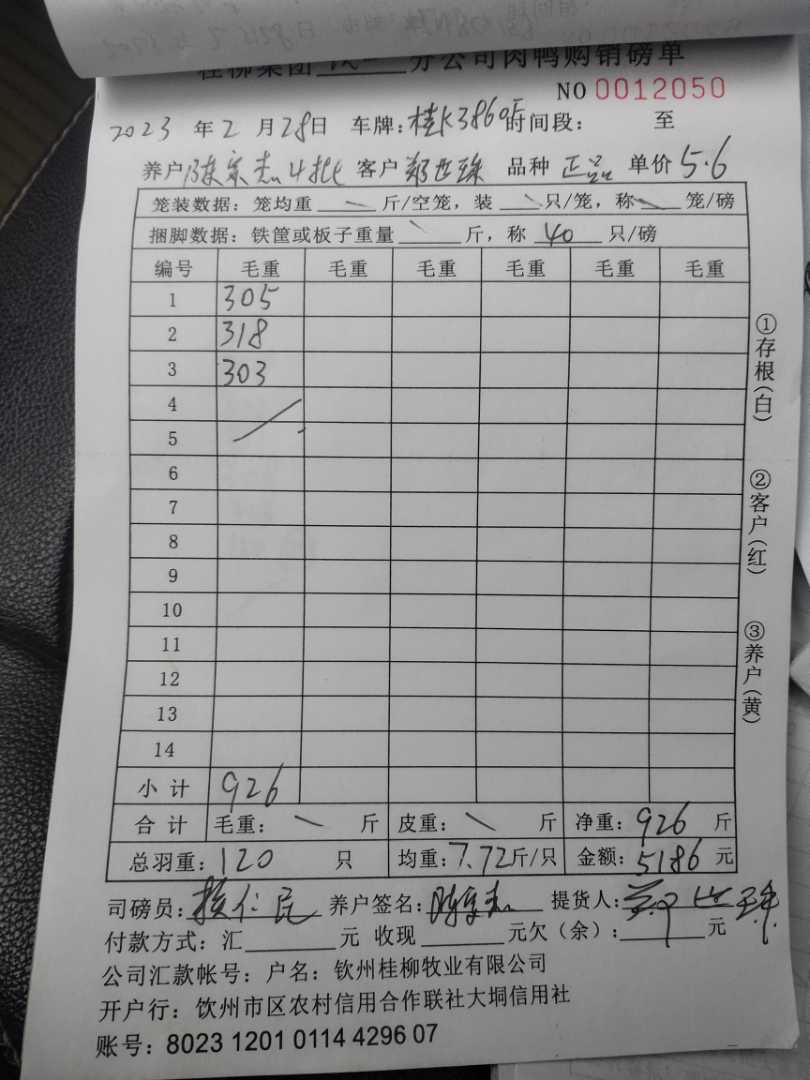 桂柳集团 分公司肉鸭购销磅单
NO 0012050
2023 年 2 月 28 日 车牌：桂K3860 时间段： 至
养户 陈宗杰4批 客户 郑世珠 品种 正品 单价 5.6
笼装数据：笼均重 斤/空笼，装 只/笼，称 笼/磅
捆脚数据：铁筐或板子重量 斤，称 40 只/磅
编号 毛重 毛重 毛重 毛重 毛重 毛重
1 305
2 318
3 303
4
5
6
7
8
9
10
11
12
13
14
小计 926
合计 毛重： 斤 皮重： 斤 净重：926 斤
总羽重：120 只 均重：7.72斤/只 金额：5186 元
司磅员： 养户签名：陈宗杰 提货人：郑世珠
付款方式：汇 元 收现 元欠（余）： 元
公司汇款帐号：户名：钦州桂柳牧业有限公司
开户行：钦州市区农村信用合作联社大垌信用社
账号：8023 1201 0114 4296 07
①存根（白）
②客户（红）
③养户（黄）